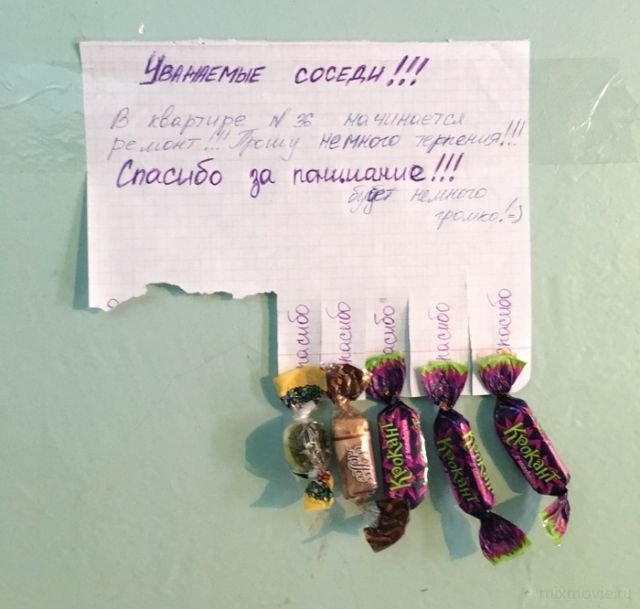 Уважаемые соседи!!!
В квартире №36 начинается
ремонт!!! Прошу немного терпения!!!
Спасибо за понимание!!!
будет немного
громко! =)
Спасибо
Спасибо
Спасибо
Спасибо
Спасибо
Крокант
Крокант
Крокант
mixmovie.ru